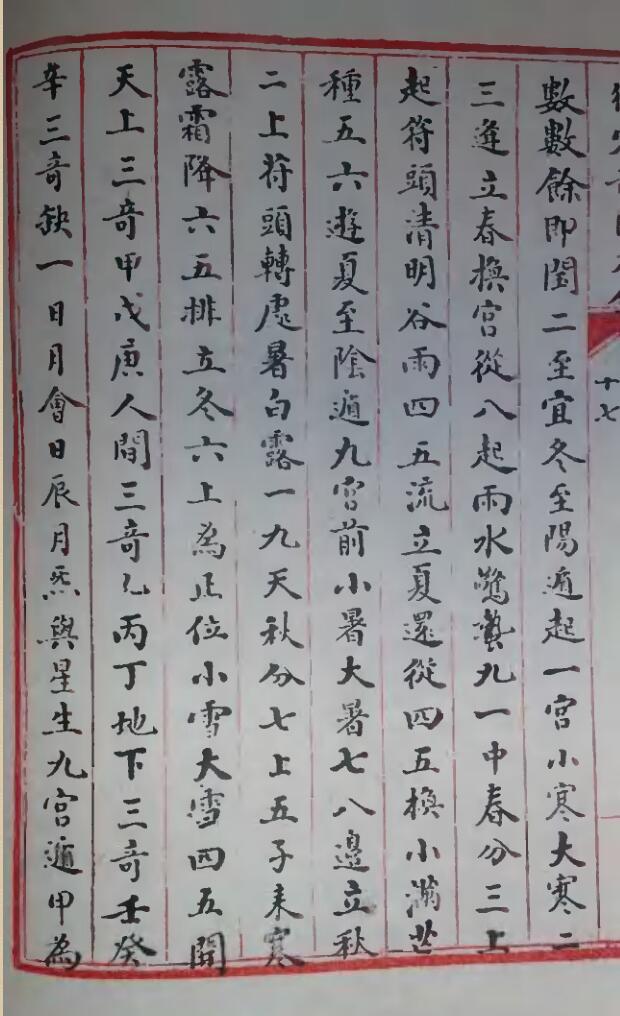 十七
數數餘即閏二至宜冬至陽遁起一宮小寒大寒二
三逢立春換宮從八起雨水驚蟄九一中春分三上
起符頭清明谷雨四五流立夏還從四五換小滿芒
種五六遊夏至陰遁九宮前小暑大暑七八邊立秋
二上符頭轉處暑白露一九天秋分七上五子来寒
露霜降六五排立冬六上為正位小雪大雪四五開
天上三竒甲戊庚人間三竒乙丙丁地下三竒壬癸
辛三竒缺一日月會日辰月炁與星生九宮遁甲為